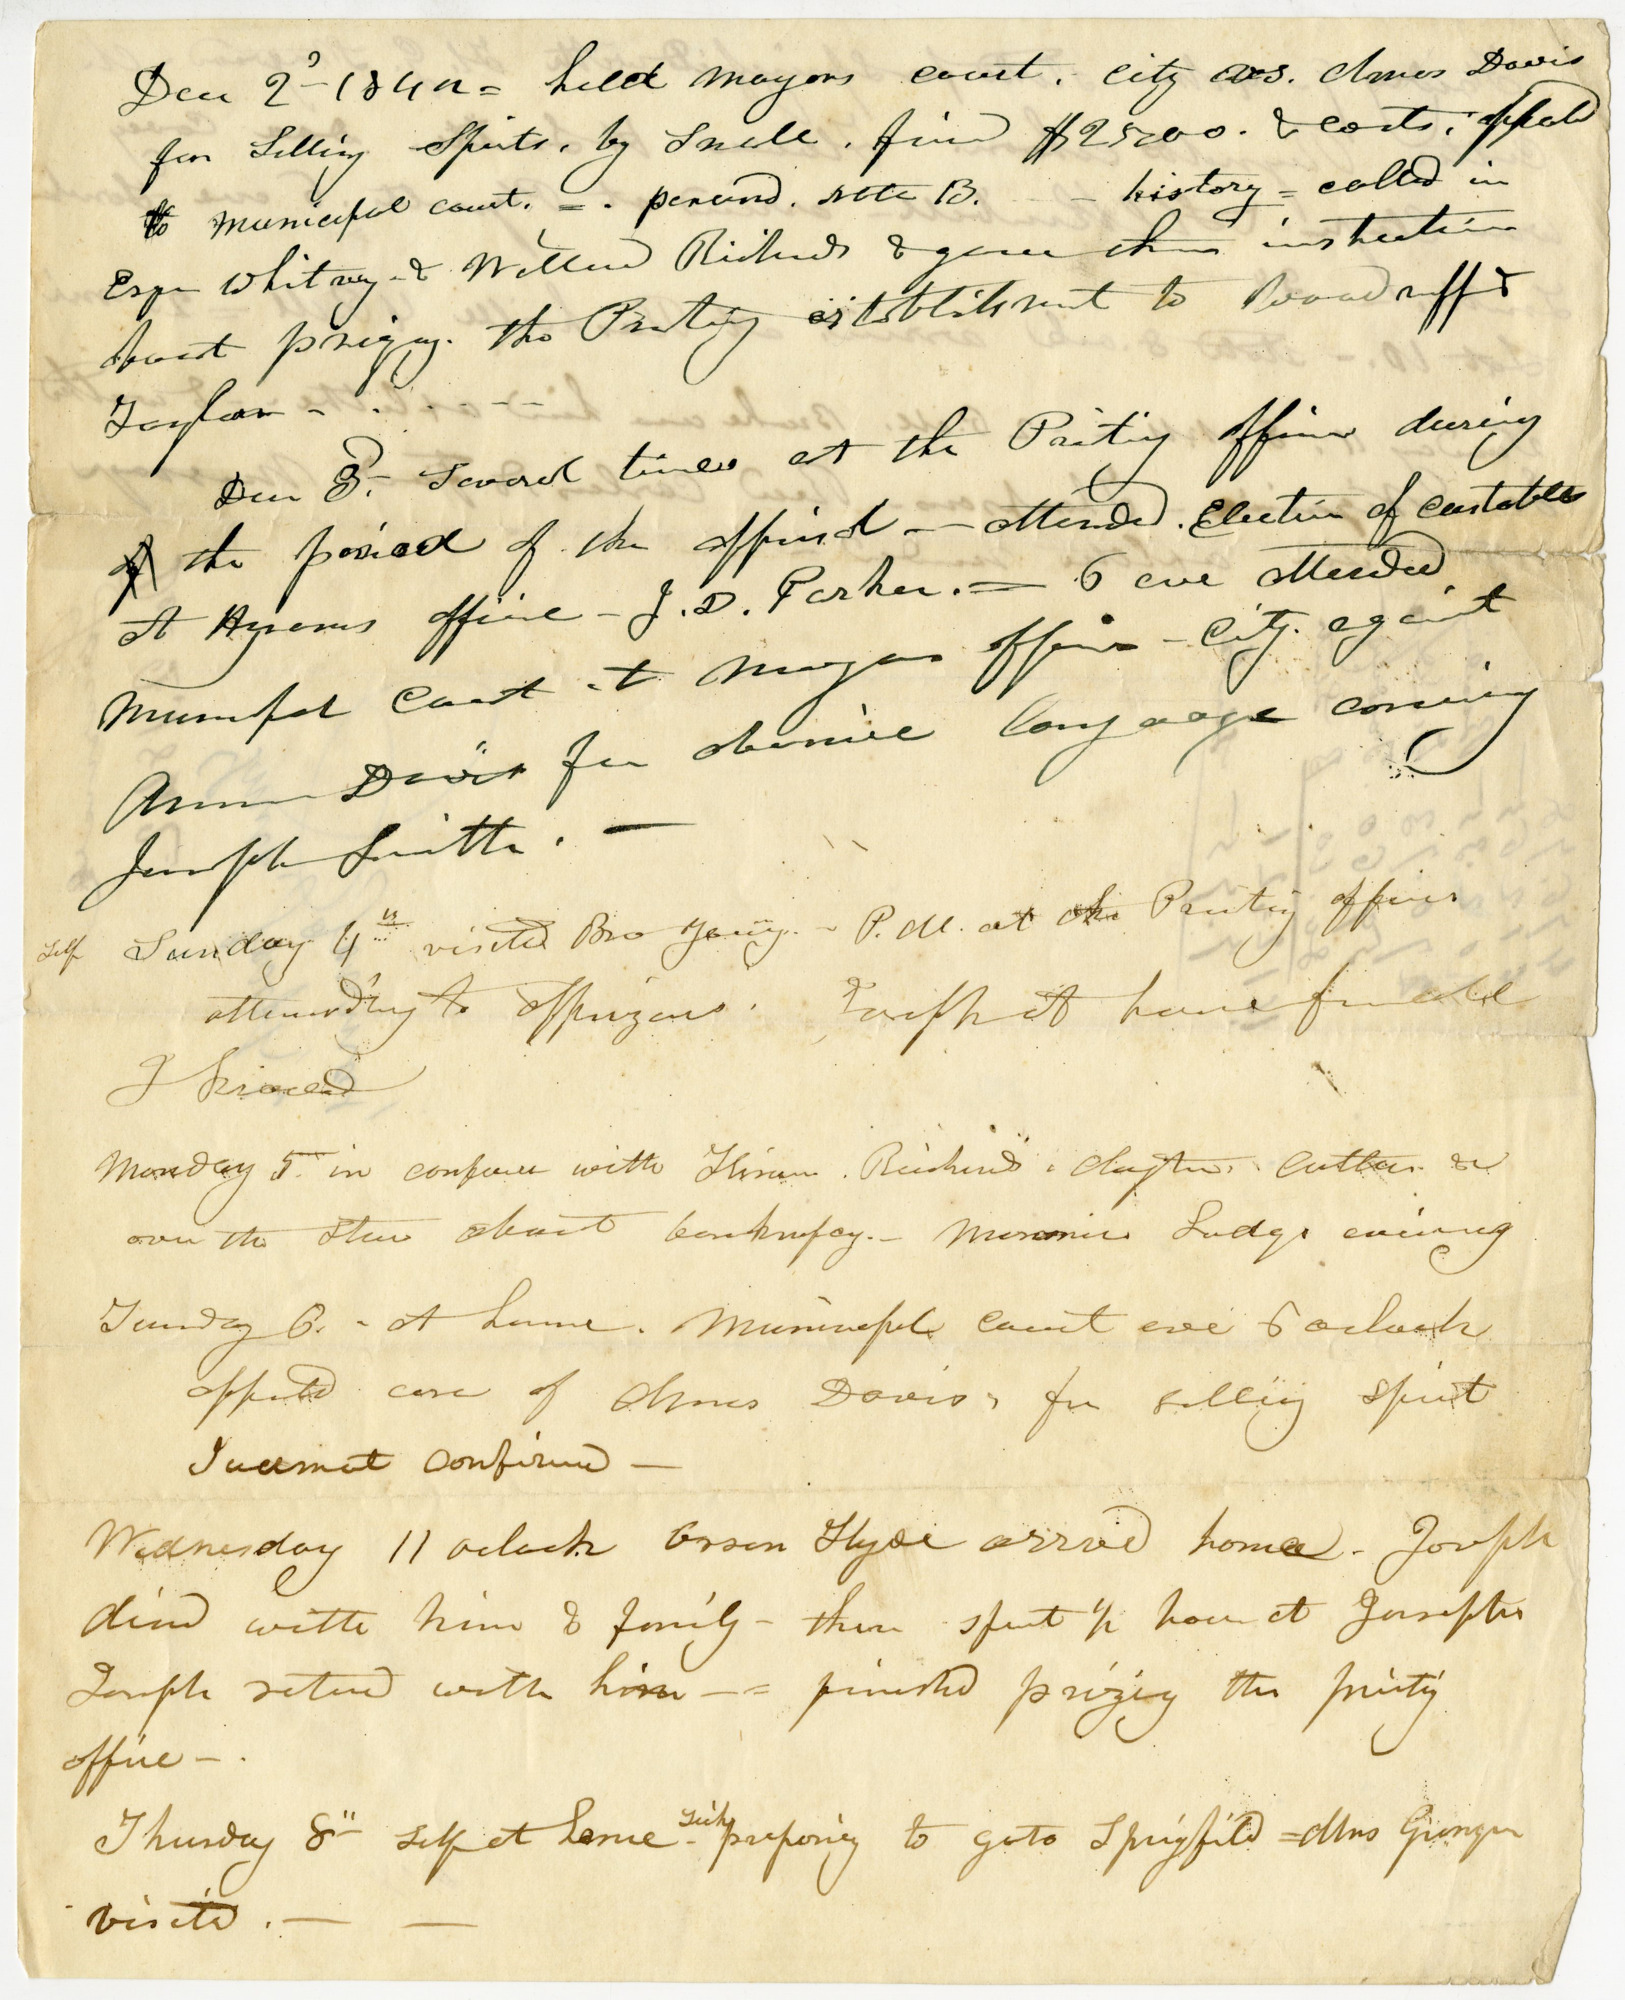 Dec 2d 1842 = held Mayors court. City vs. Amos Davis
for Selling Spirits. by Small. fined $25.00. & costs. appeald
to Municipal court. = . note B. - - history = called in
Esqr Whitney & Willard Richards & gave them instructions
about prizing. the Printing establishment to Woodruff &
Taylor - . . . - - -
Dec 3d. Several times at the Printing office during
the period of the apprisal - attended. Election of Constable
At Hyrums office - J. D. Parker. = 6 eve attended
Municipal Court at Mayors office - City against
Amos Davis for abusive language concerning
Joseph Smith. —
Self Sunday 4th visited Bro Young. - P.M. at the Printing office
attending to apprizers. Joseph at home

Monday 5th in conference with Hiram. Richards. Clayton. Cutler &c
over the Store about bankruptcy. - Masonic Lodge evening
Tuesday 6. - at home. Municipal Court eve 6 oclock
appeald case of Amos Davis, for selling Spirit
Judgment confirmed —
Wednesday 11 oclock Orson Hyde arrived home. Joseph
dined with him & family - then spent ½ hour at Josephs
Joseph returned with him - = finished prizing the printing
office - .
Thursday 8th Self at home - Sick preparing to go to Springfield = Mrs Granger
visited. — —